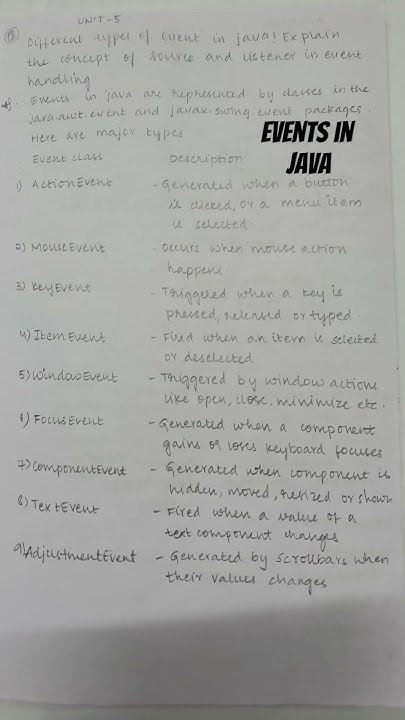 UNIT-5
Different types of Event in java? Explain
the concept of source and listener in event
handling
Events in java are represented by classes in the
java.awt.event and javax.swing.event packages.
Here are major types
EVENTS IN
JAVA
Event class Description
1) ActionEvent - Generated when a button
is clicked, or a menu item
is selected.
2) MouseEvent - Occurs when mouse action
happens.
3) KeyEvent - Triggered when a key is
pressed, released or typed.
4) ItemEvent - Fired when an item is selected
or deselected
5) WindowEvent - Triggered by window actions
like open, close, minimize etc.
6) FocusEvent - Generated when a component
gains or loses keyboard focuses
7) ComponentEvent - Generated when component is
hidden, moved, resized or shown
8) TextEvent - Fired when a value of a
text component changes
9) AdjustmentEvent - Generated by scrollbars when
their values changes